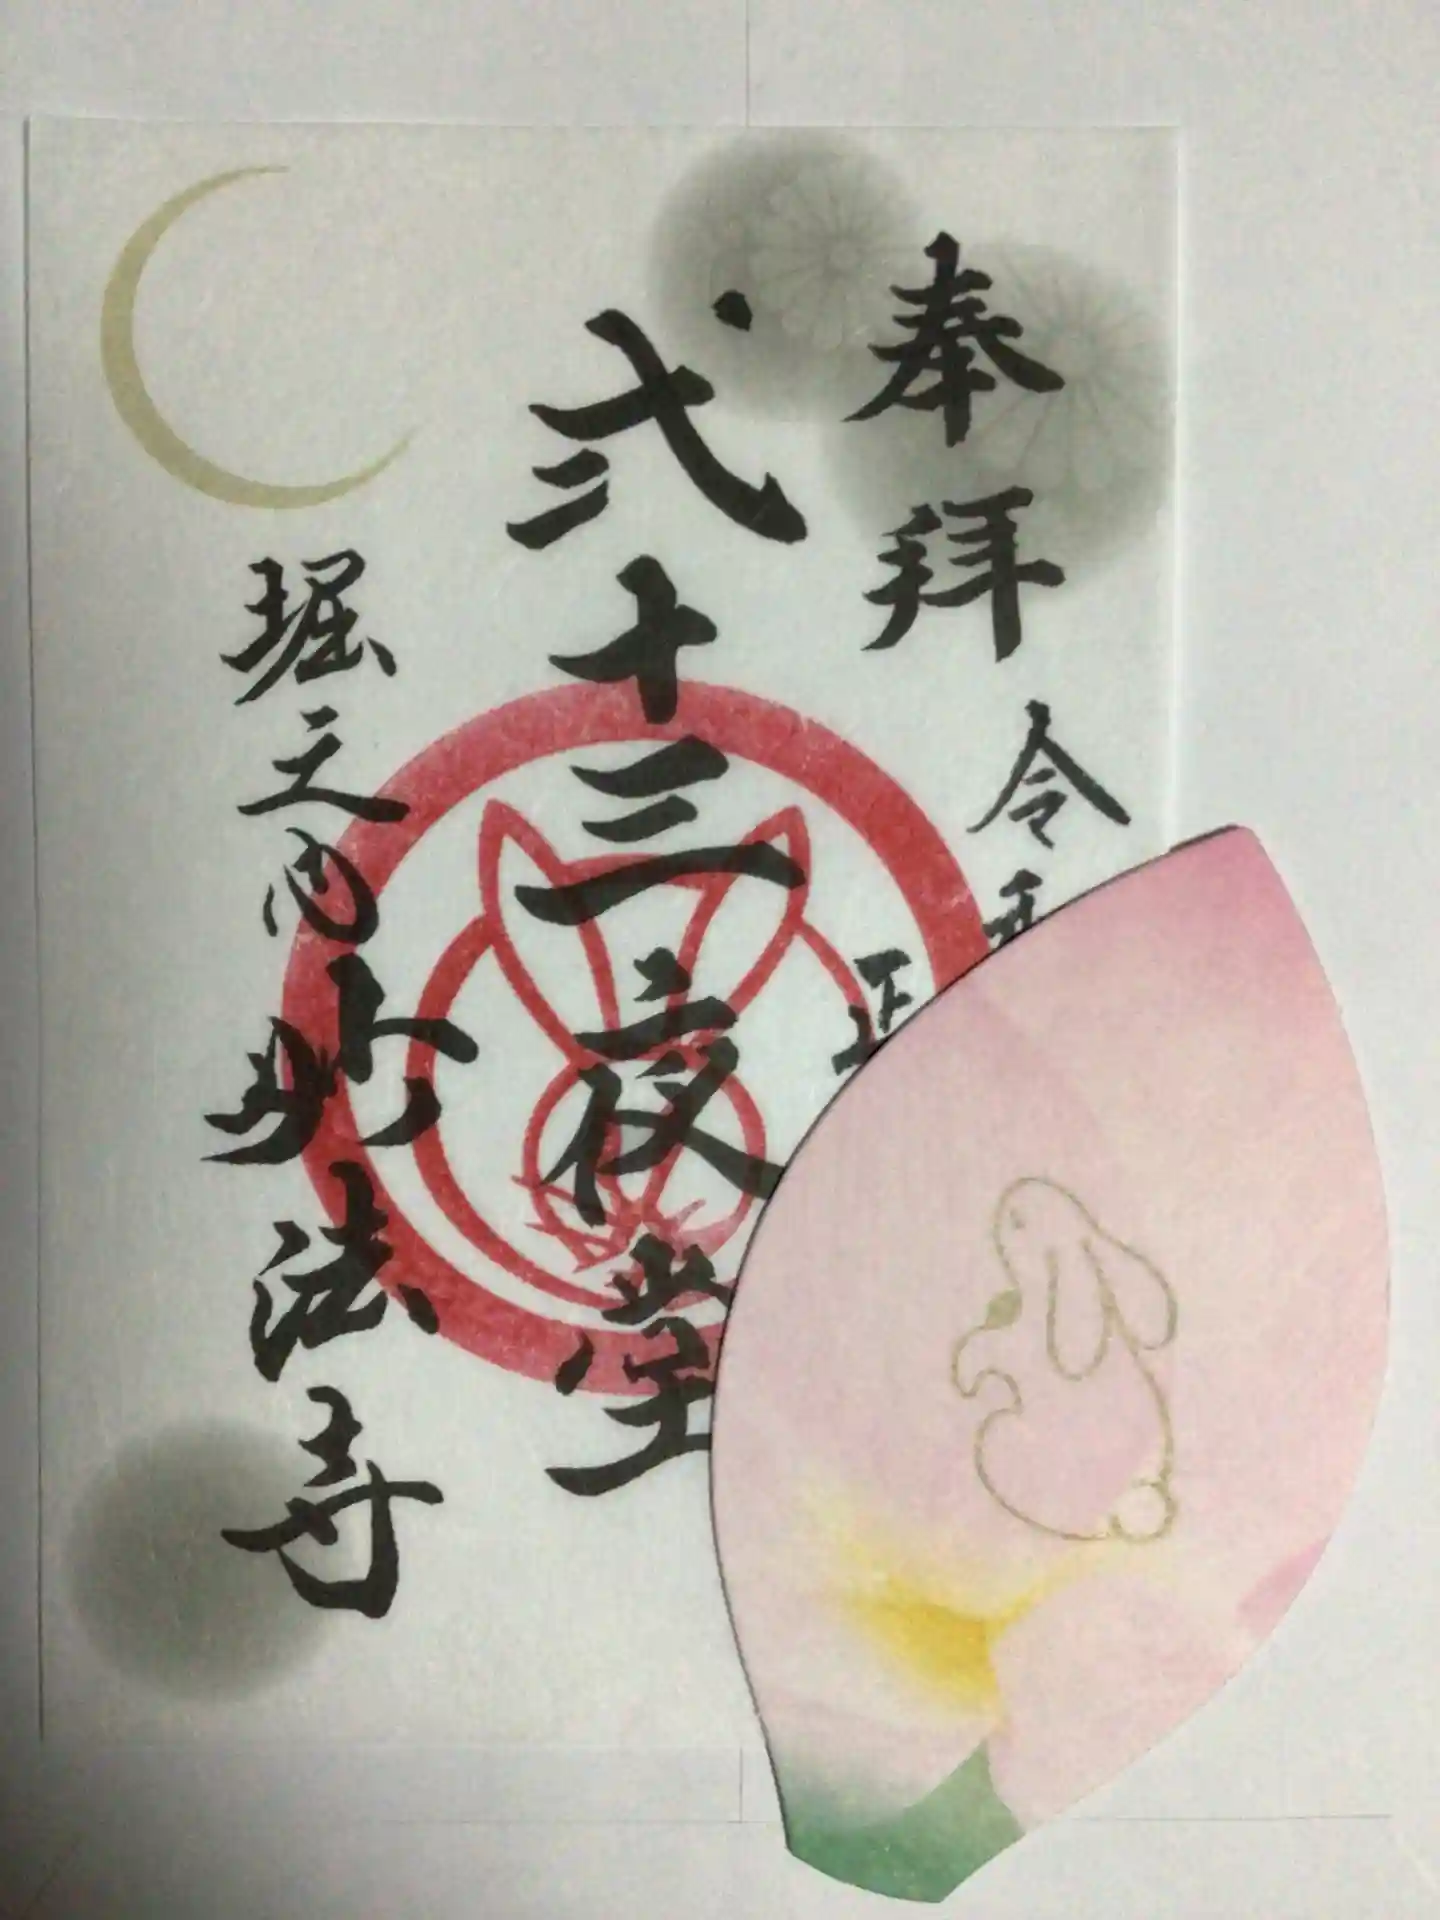 奉拝
令和
正
弐十三夜堂
堀之内妙法寺